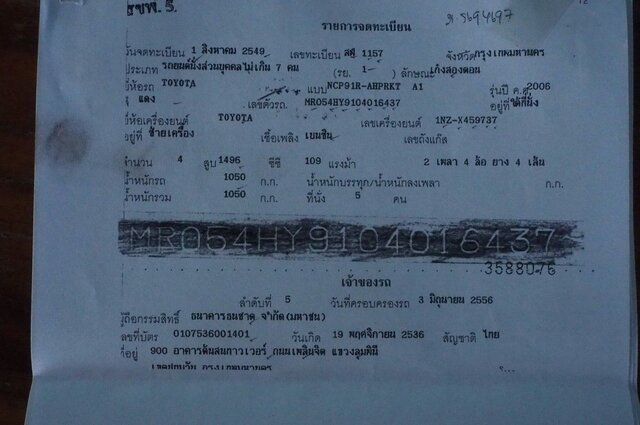 รายการจดทะเบียน
วันจดทะเบียน 1 สิงหาคม 2549 เลขทะเบียน 1157 จังหวัดกรุงเทพมหานคร
ประเภท รถยนต์นั่งส่วนบุคคลไม่เกิน 7 คน (รย. 1) ลักษณะเก๋งสองตอน
ยี่ห้อรถ TOYOTA แบบ NCP91R-AHPRKT A1 รุ่นปี ค.ศ. 2006
สี แดง เลขตัวรถ MR054HY9104016437 อยู่ที่ ใต้ที่นั่ง
ยี่ห้อเครื่องยนต์ TOYOTA เลขเครื่องยนต์ 1NZ-X459737
อยู่ที่ ซ้ายเครื่อง เชื้อเพลิง เบนซิน เลขถังแก๊ส
จำนวน 4 สูบ 1496 ซีซี 109 แรงม้า 2 เพลา 4 ล้อ ยาง 4 เส้น
น้ำหนักรถ 1050 ก.ก. น้ำหนักบรรทุก/น้ำหนักลงเพลา ก.ก.
น้ำหนักรวม 1050 ก.ก. ที่นั่ง 5 คน
MR054HY9104016437
3588076
เจ้าของรถ
ลำดับที่ 5 วันที่ครอบครองรถ 3 มิถุนายน 2556
ผู้ถือกรรมสิทธิ์ ธนาคารธนชาต จำกัด(มหาชน)
เลขที่บัตร 0107536001401 วันเกิด 19 พฤศจิกายน 2536 สัญชาติ ไทย
ที่อยู่ 900 อาคารต้นสนทาวเวอร์ ถนนเพลินจิต แขวงลุมพินี
เขตปทุมวัน กรุงเทพมหานคร